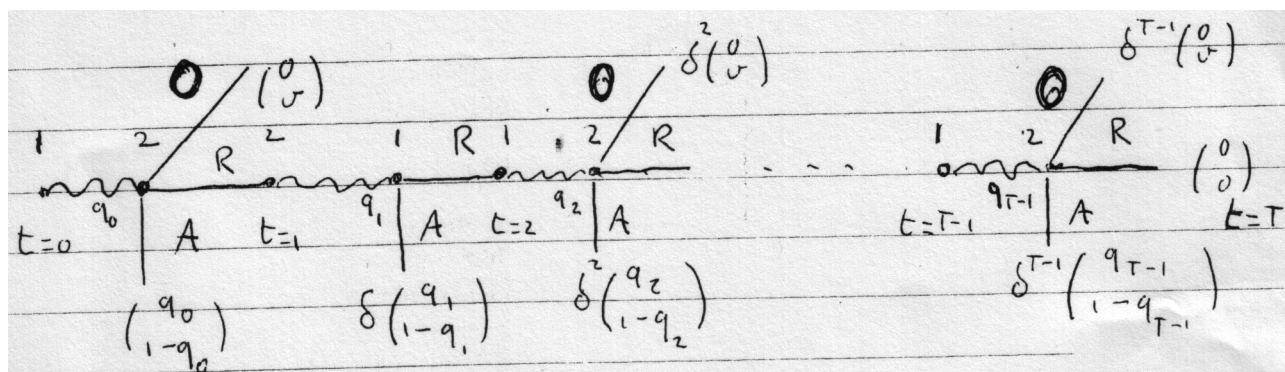 (0 v)
δ² (0 v)
δ^{T-1} (0 v)
1 2 R 2 1 R 1 2 R 1 2 R (0 0)
q₀ q₁ q₂ q_{T-1}
t=0 A t=1 A t=2 A t=T-1 A t=T
(q₀ 1-q₀) δ (q₁ 1-q₁) δ² (q₂ 1-q₂) δ^{T-1} (q_{T-1} 1-q_{T-1})